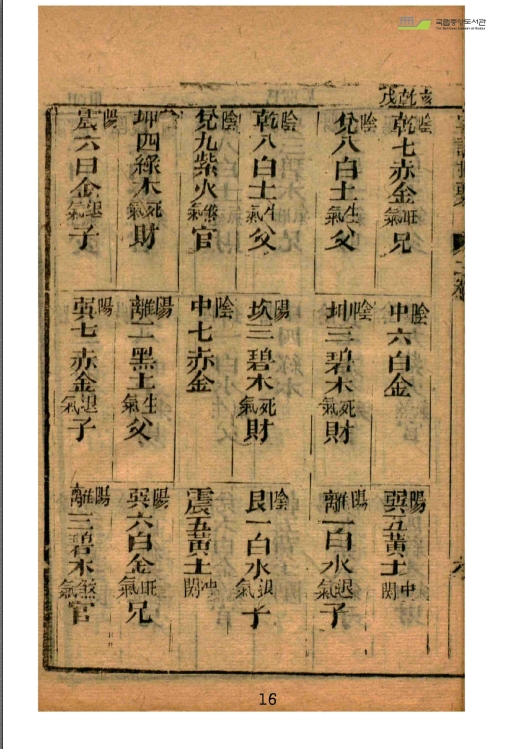 국립중앙도서관
The National Library of Korea
亥乾戌
陰乾七赤金旺氣兄
陰中六白金
陽巽五黃土中関
陰兌八白土生氣父
陰坤三碧木死氣財
陽離一白水退氣子
陰乾八白土生氣父
陽坎三碧木死氣財
陰艮一白水退氣子
陰兌九紫火煞氣官
陰中七赤金
震五黃土冲関
坤四綠木死氣財
陽離二黑土生氣父
陽巽六白金旺氣兄
陽震六白金退氣子
巽七赤金退氣子
陽離三碧木煞氣官
16